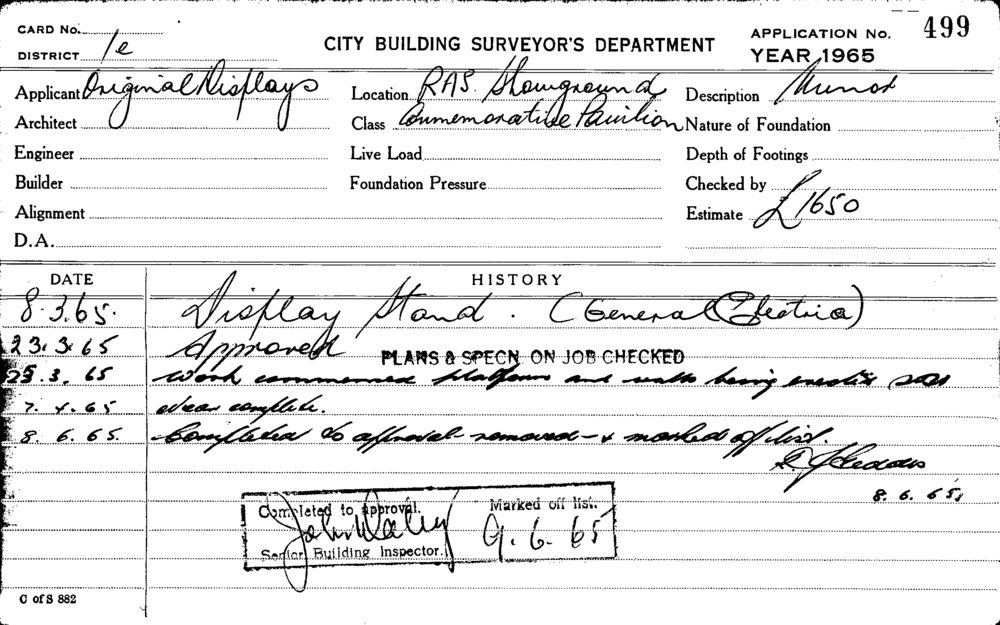 CARD No.
DISTRICT 1e
CITY BUILDING SURVEYOR'S DEPARTMENT
APPLICATION No. 499
YEAR 1965
Applicant Original Displays
Location RAS. Showground
Description Minor
Architect
Class Commemorative Pavilion
Nature of Foundation
Engineer
Live Load
Depth of Footings
Builder
Foundation Pressure
Checked by
Alignment
Estimate £1650
D.A.
DATE HISTORY
8.3.65. Display Stand. (General Electric)
23.3.65 Approved PLANS & SPECN. ON JOB CHECKED
25.3.65 Work commenced platform and walls being erected
7.4.65 Near complete.
8.6.65. Completed to approval - removed - & marked off list.
8.6.65.
Completed to approval. Marked off list.
John Daley 9.6.65
Senior Building Inspector.
C of S 882